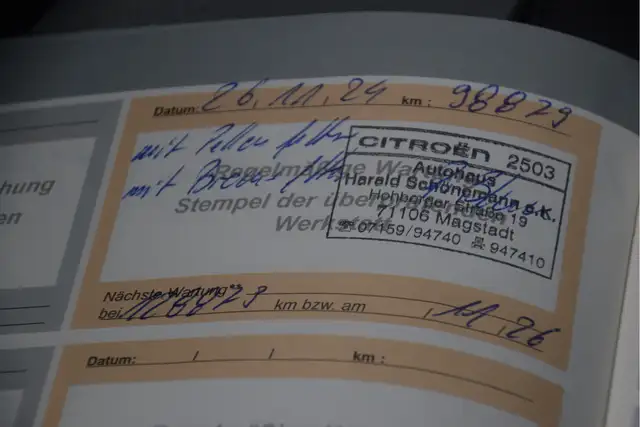 Datum: 26.11.24 km: 98829
mit Pollenfilter
mit Brems
Regelmäßige
Stempel der
Werkstatt
CITROËN 2503
Autohaus
Harald Schönemann e.K.
Hohberger Straße 19
71106 Magstadt
07159/94740 947410
hung
en
Nächste Wartung
bei km bzw. am 11.26
Datum: / / km: